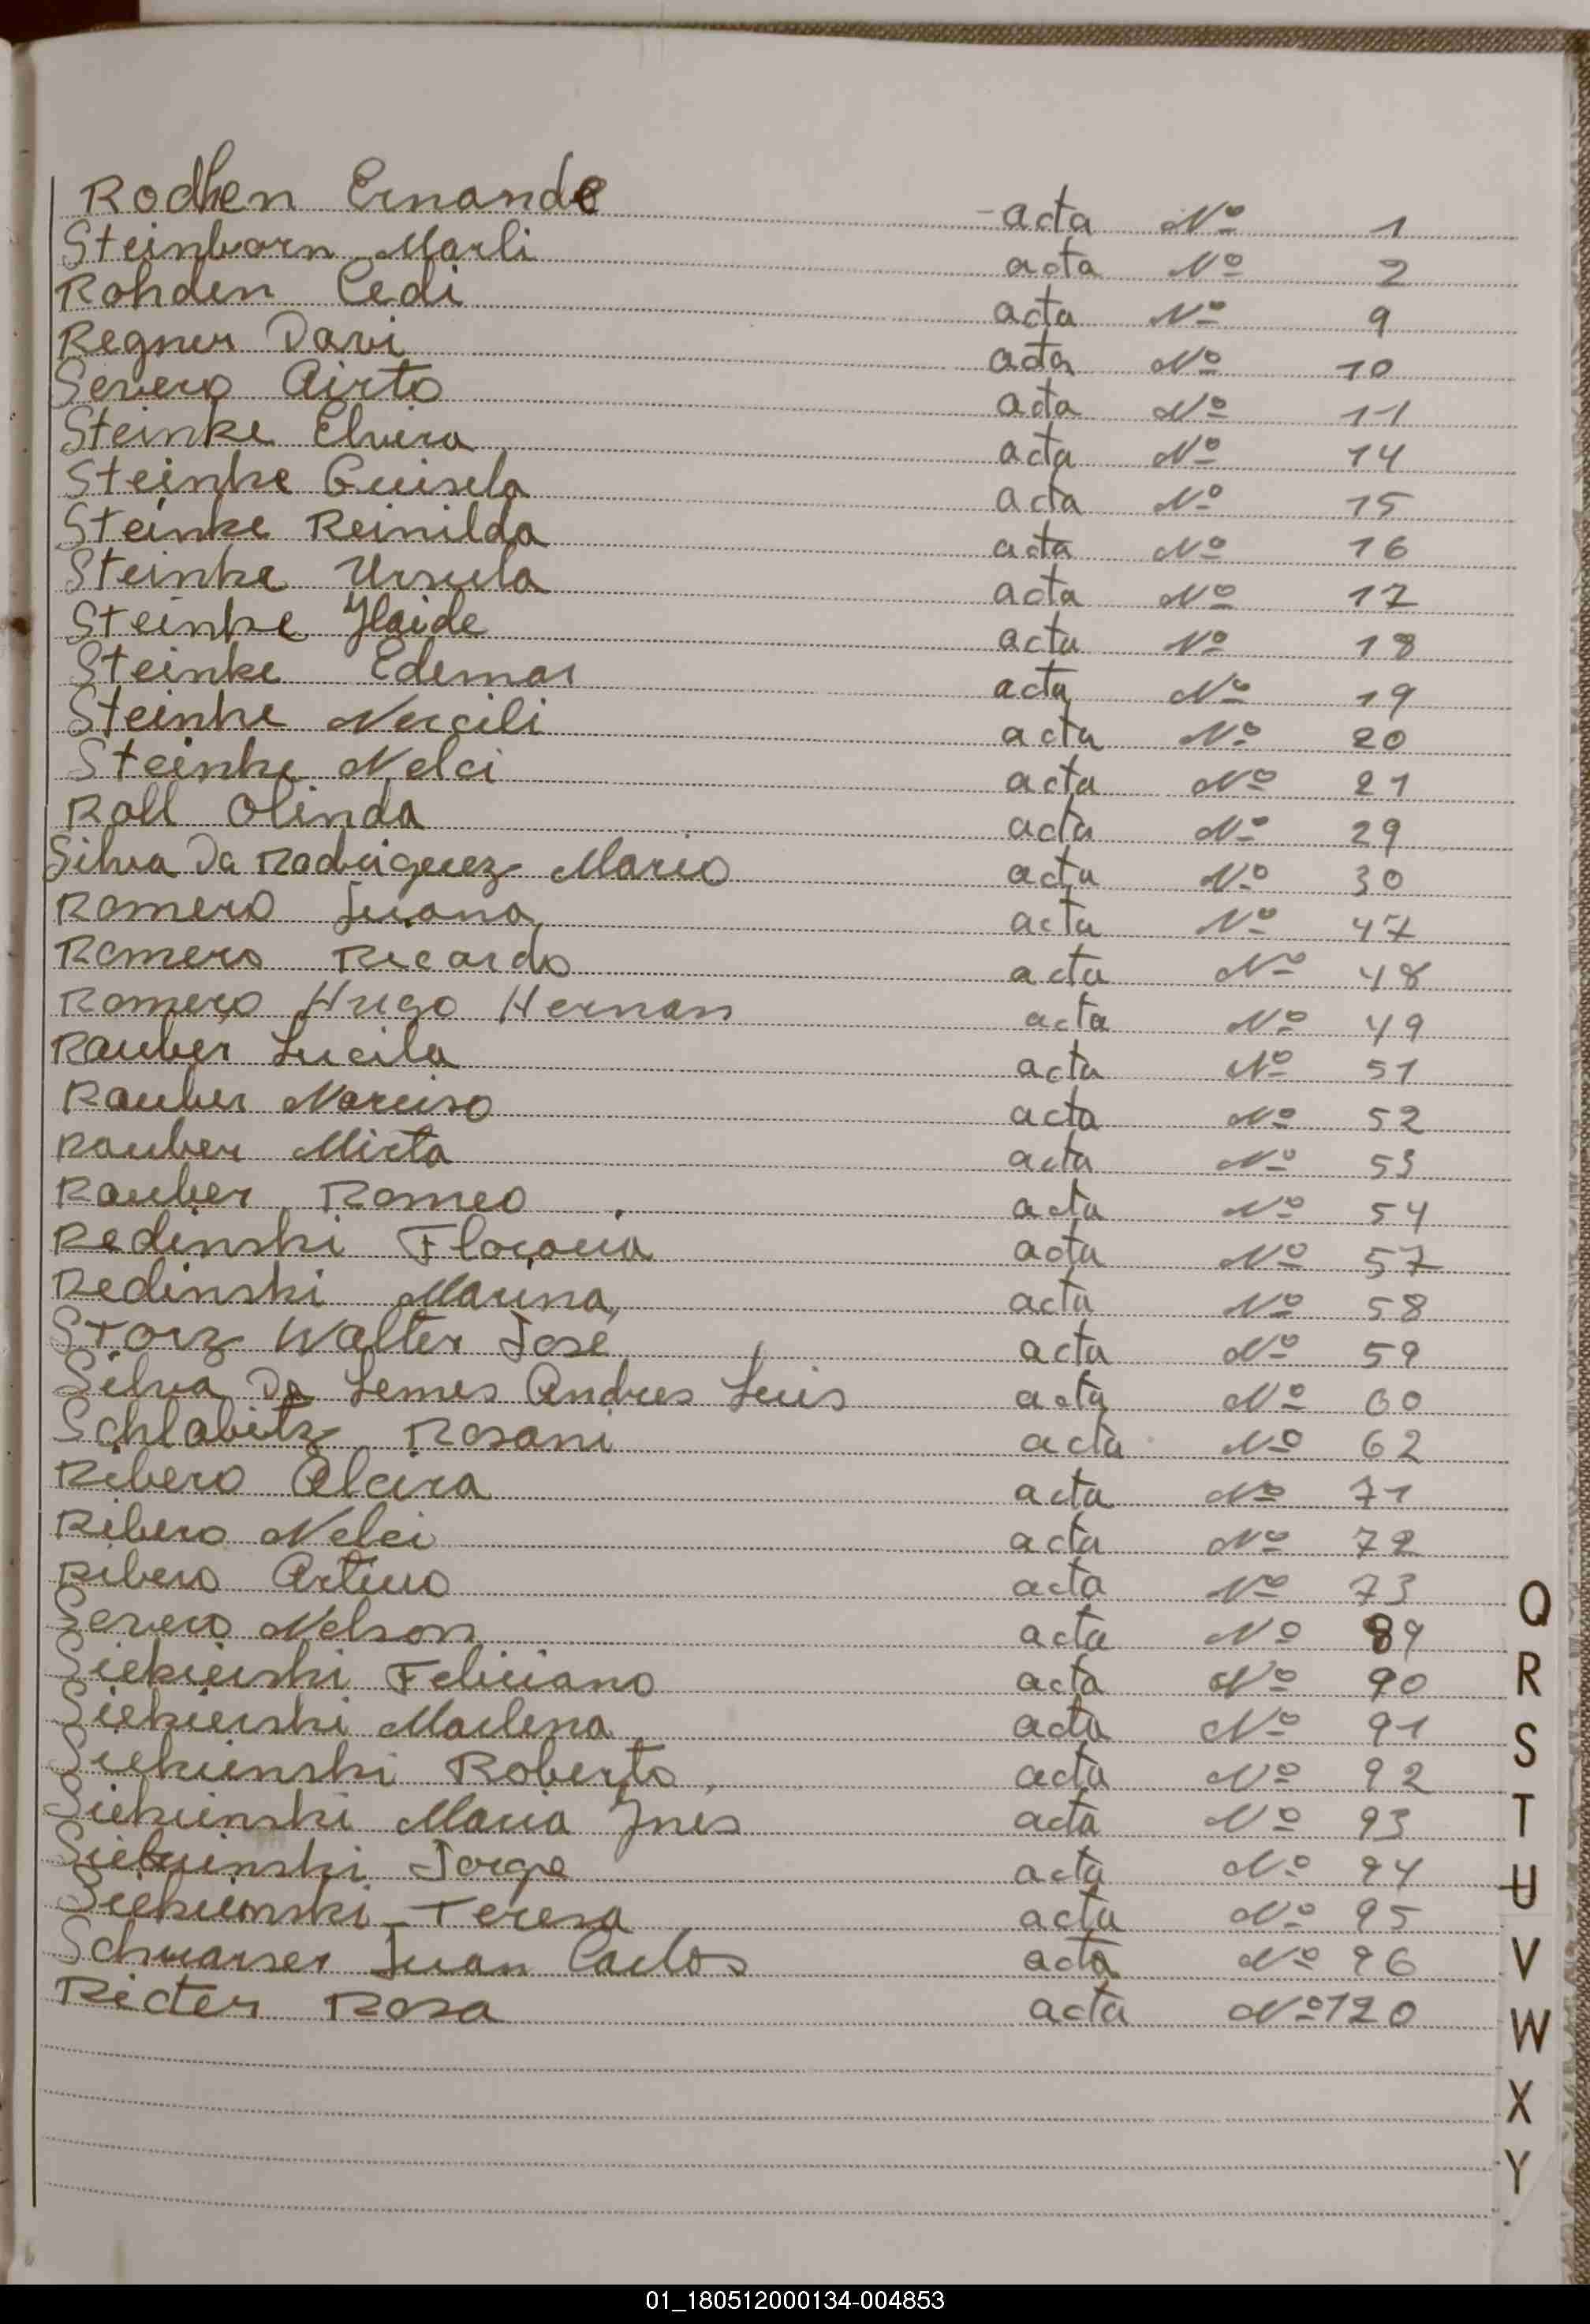 Rodhen Ernando acta Nº 1
Steinborn Marli acta Nº 2
Rohden Ledi acta Nº 9
Regner Davi acta Nº 10
Severo Airto acta Nº 11
Steinke Elvira acta Nº 14
Steinke Guisela acta Nº 15
Steinke Reinilda acta Nº 16
Steinke Ursula acta Nº 17
Steinke Ylaide acta Nº 18
Steinke Edemar acta Nº 19
Steinke Nercili acta Nº 20
Steinke Nelci acta Nº 21
Roll Olinda acta Nº 29
Silva Da Rodriguez Mario acta Nº 30
Romero Juana acta Nº 47
Romero Ricardo acta Nº 48
Romero Hugo Hernan acta Nº 49
Rauber Lucila acta Nº 51
Rauber Narciso acta Nº 52
Rauber Mirta acta Nº 53
Rauber Romeo acta Nº 54
Redinski acta Nº 57
Redinski Marina acta Nº 58
Storz Walter José acta Nº 59
Silva Da Lemes Andres Luis acta Nº 60
Schlabitz Rosani acta Nº 62
Ribero Alcira acta Nº 71
Ribero Nelci acta Nº 72
Ribero Arturo acta Nº 73
Severo Nelson acta Nº 89
Siekierski Feliciano acta Nº 90
Siekierski Marlena acta Nº 91
Siekierski Roberto acta Nº 92
Siekierski Maria Ynes acta Nº 93
Siekierski Jorge acta Nº 94
Siekierski Teresa acta Nº 95
Schwarser Juan Carlos acta Nº 96
Ricter Rosa acta Nº 120
Q
R
S
T
U
V
W
X
Y
01_180512000134-004853